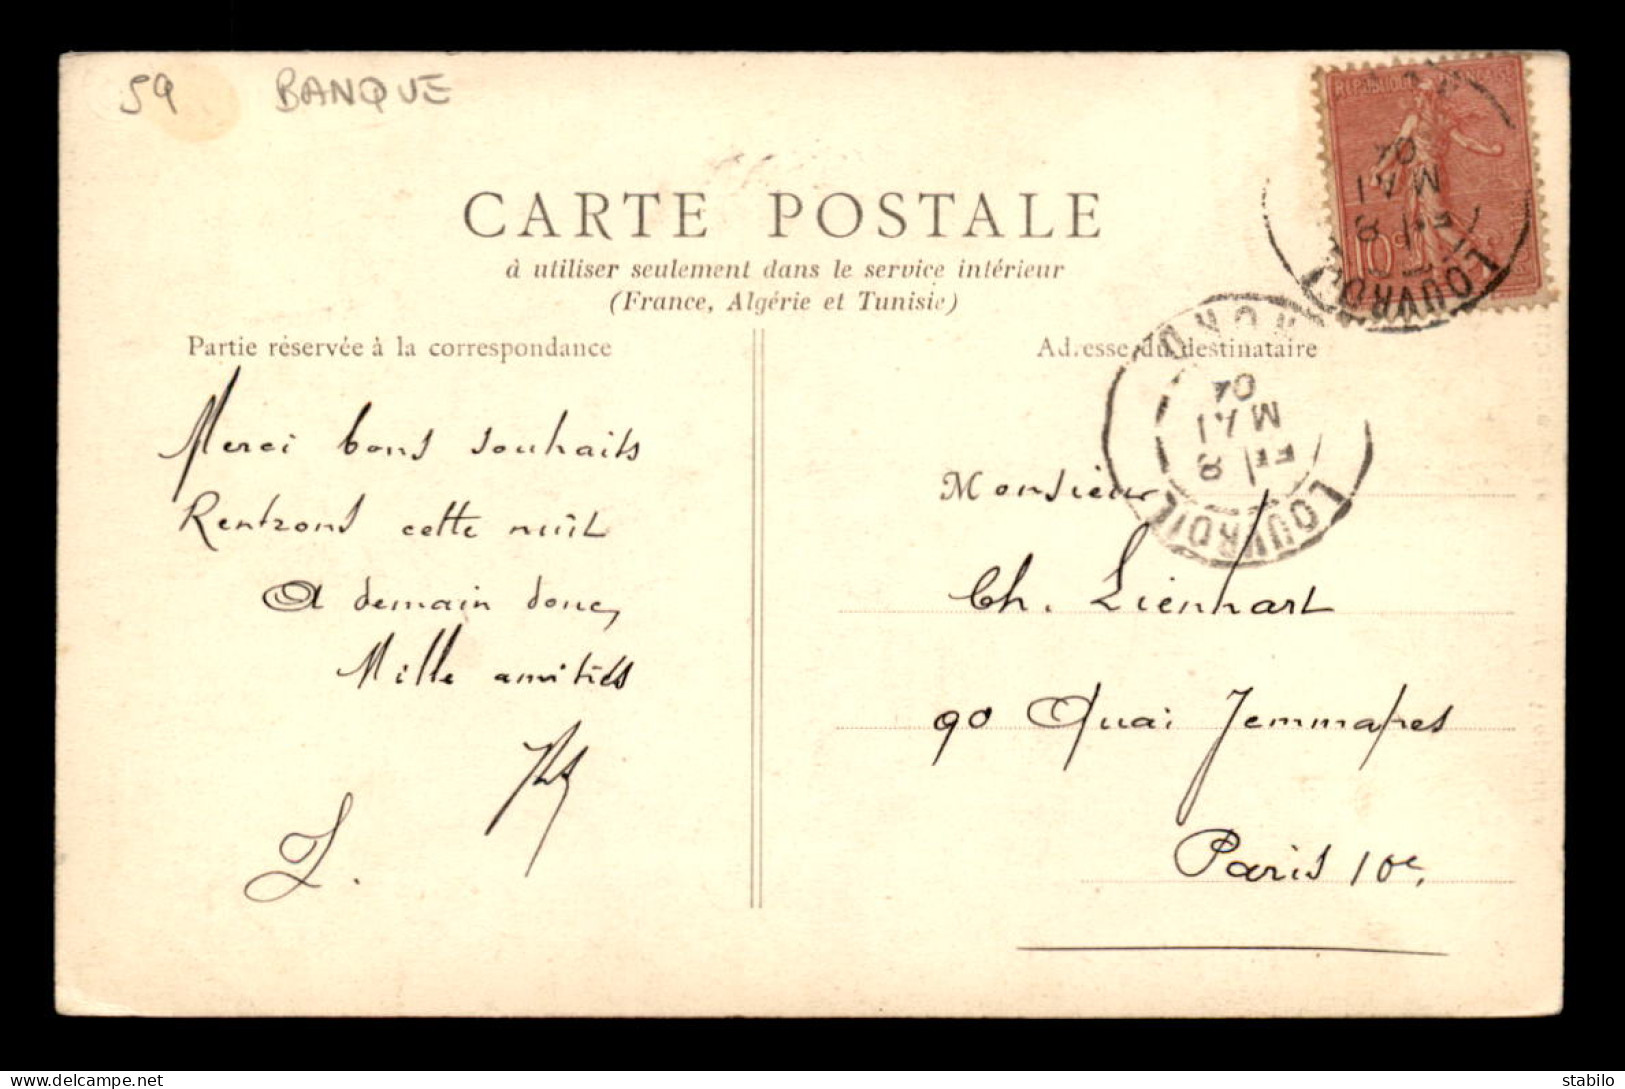 59 BANQUE
CARTE POSTALE
à utiliser seulement dans le service intérieur
(France, Algérie et Tunisie)
Partie réservée à la correspondance
Adresse du destinataire
Merci bons souhaits
Rentrons cette nuit
A demain donc,
Mille amitiés
L.
Monsieur
Ch. Lienhart
90 Quai Jemmapes
Paris 10e.
RÉPUBLIQUE FRANÇAISE
10c
LOUVROIL
8
MAI
04
NORD
LOUVROIL
8
MAI
04
delcampe.net
stabilo